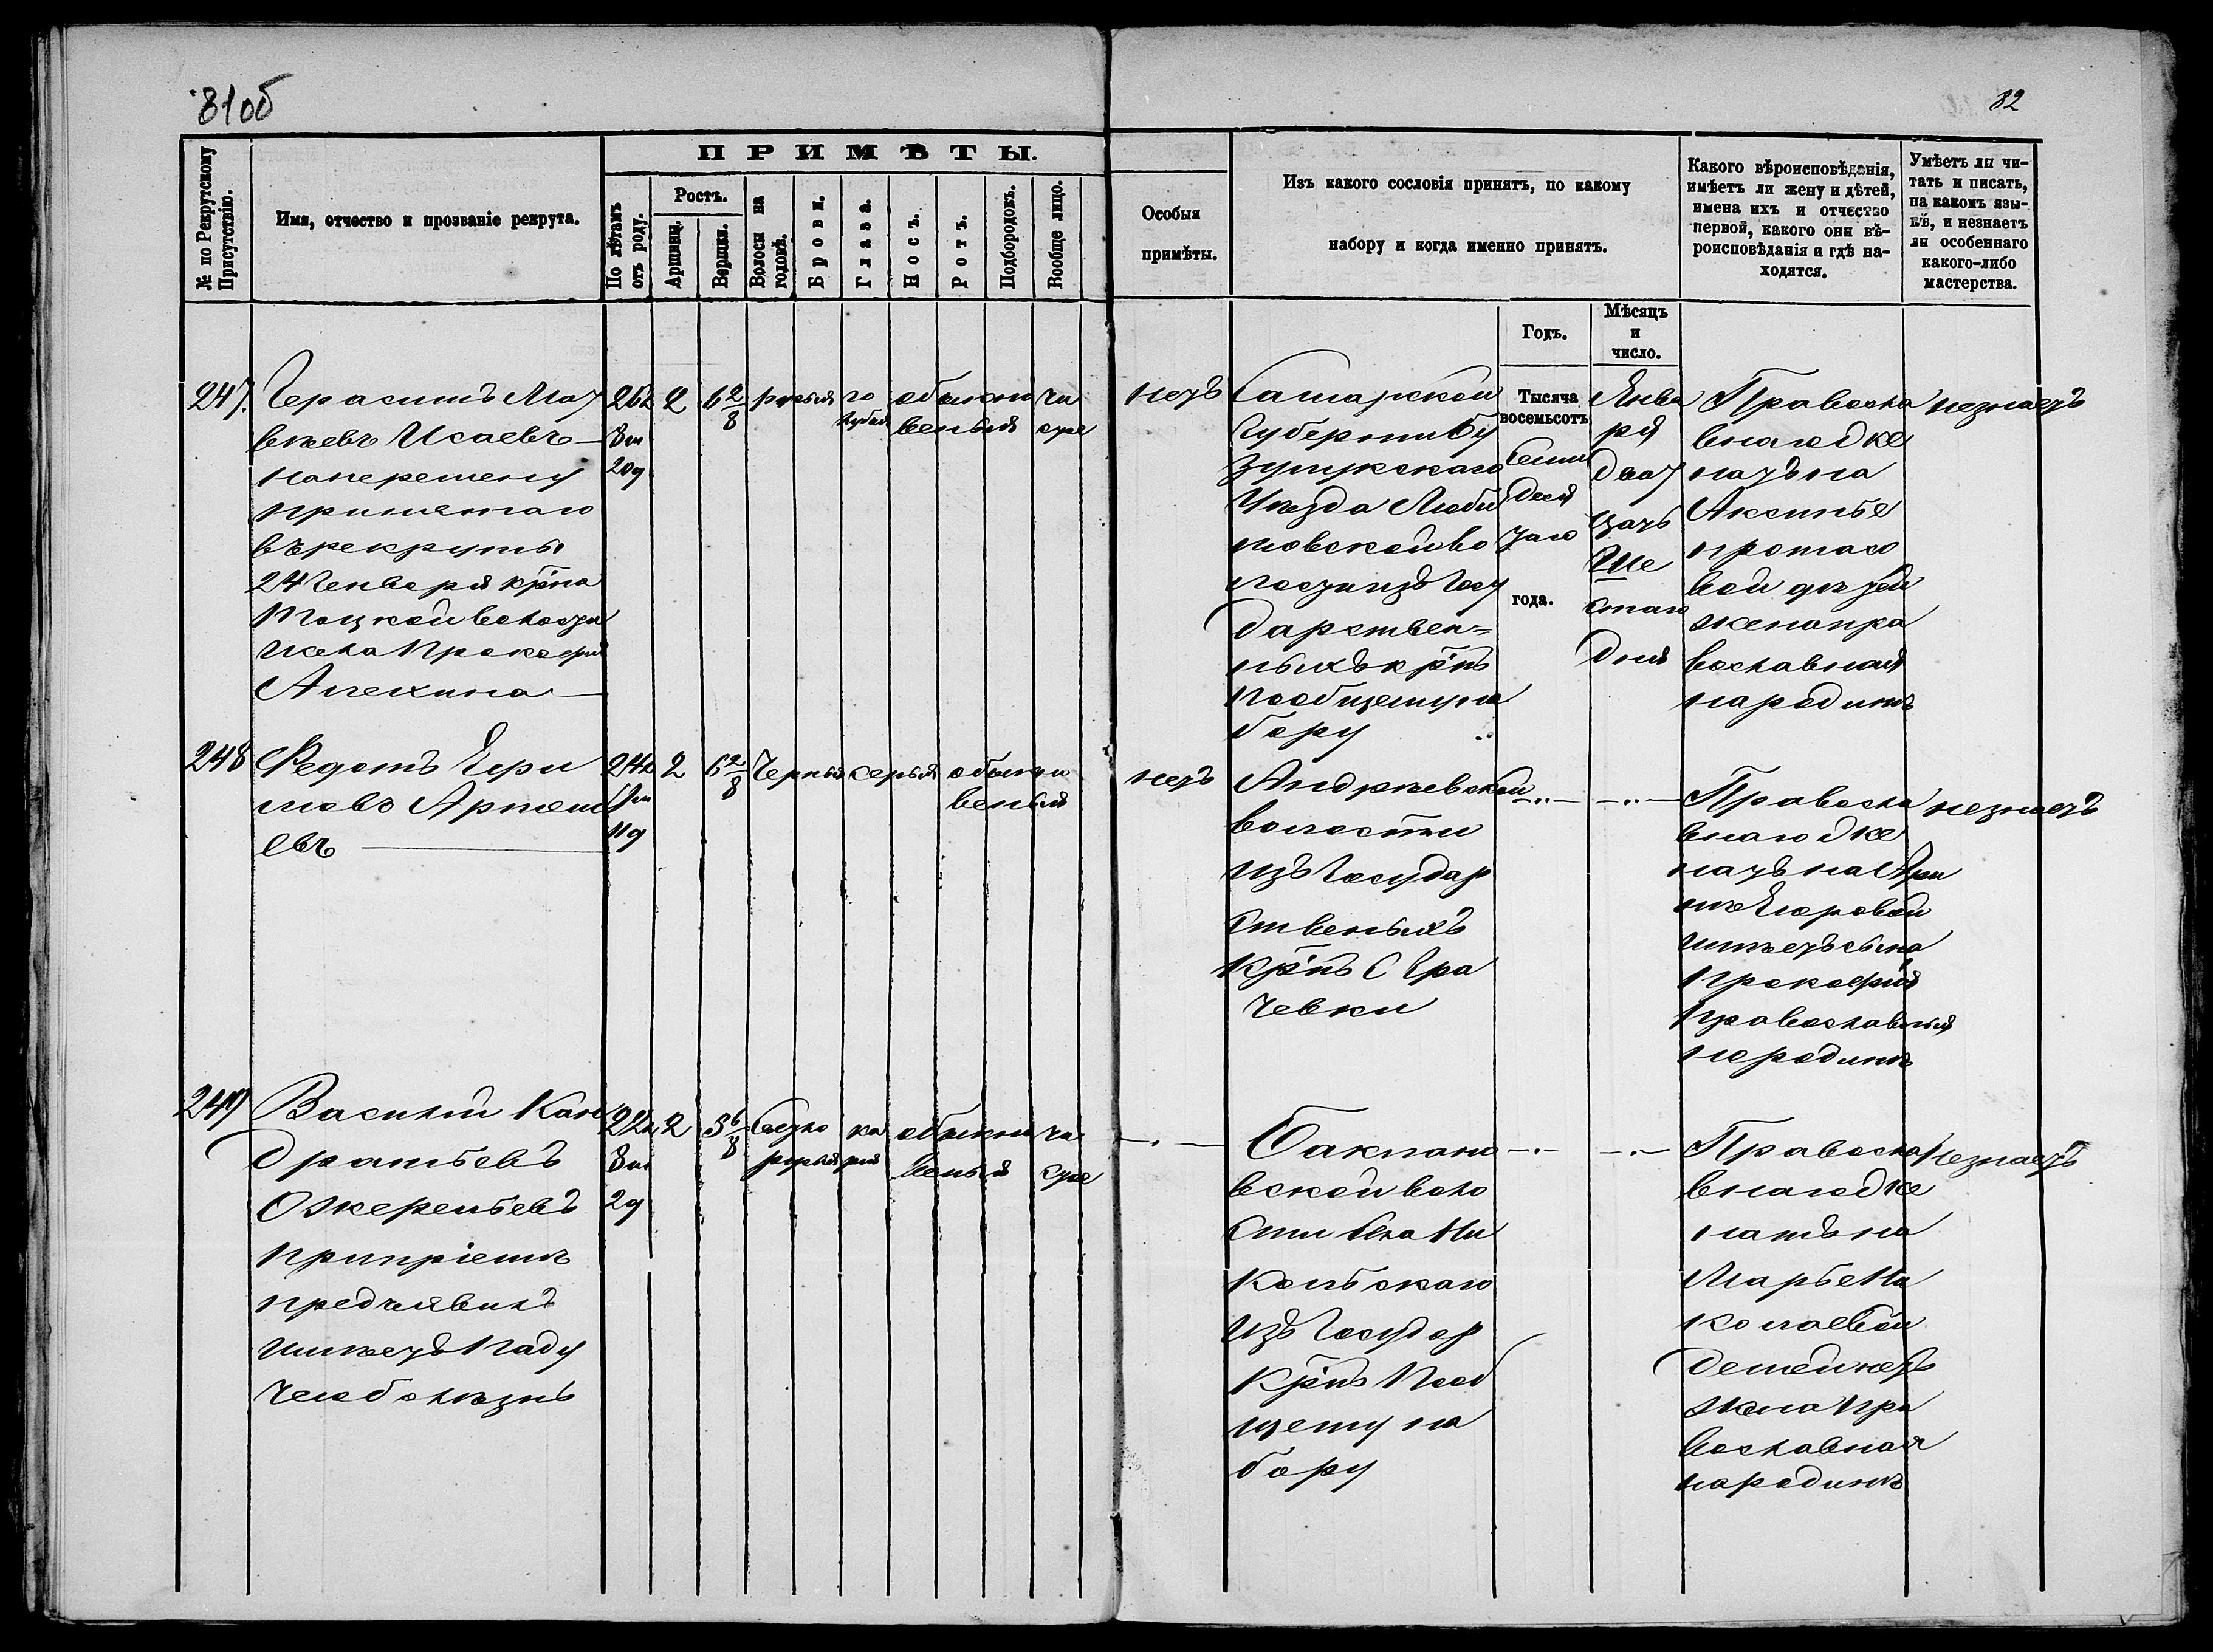 81об
82
№ по Рекрутскому Присутствію.
Имя, отчество и прозваніе рекрута.
ПРИМѢТЫ.
По лѣтамъ отъ роду.
Ростъ.
Аршинъ.
Вершки.
Волосы на головѣ.
Брови.
Глаза.
Носъ.
Ротъ.
Подбородокъ.
Вообще лицо.
Особыя
примѣты.
Изъ какого сословія принятъ, по какому
набору и когда именно принятъ.
Какого вѣроисповѣданія,
имѣетъ ли жену и дѣтей,
имена ихъ и отчество
первой, какого они вѣ-
роисповѣданія и гдѣ на-
ходятся.
Умѣетъ ли чи-
тать и писать,
на какомъ язы-
кѣ, и незнаетъ
ли особеннаго
какого-либо
мастерства.
Годъ.
Мѣсяцъ
и
число.
247.
Герасимъ Мат
вѣевъ Исаевъ
наперемену
принятаго
въ рекруты
24 Генваря крна
Тоцкой волости
Прокофія
Алехина
26л
8м
20д
2
6 2/8
русыя
го
лубыя
обыкно
венный
чи
стое
нетъ
Самарской
Губерніи Бу
зулукскаго
Уѣзда Люби
мовской во
лости изъ Госу
дарствен=
ныхъ крнъ
Пообщему на
бору
Тысяча
восемьсотъ
семи
деся
таго
года.
Янва
ря
двад
цать
ше
стаго
дня
Правосла
вной же
натъ на
Аксинье
вой детей
жена пра
вославная
народине
незнаетъ
248
Федотъ Ефи
мовъ Артемь
евъ
24л
11д
2
6 2/8
Черныя
серыя
обыкно
венный
нетъ
Андреевской
волости
изъ Государ
ственныхъ
Крнъ С Гра
чевки
Правосла
вной же
натъ на
Егоровой
имѣетъ сына
Прокофія
Православный
народине
незнаетъ
249
Василій Кон
дратьевъ
Ожерельевъ
при пріеме
предъявилъ
имѣетъ Паду
чею болѣзнь
22л
8м
2д
2
3 6/8
светло
русыя
ка
рія
обыкно
венный
чи
стое
Баклано
вской воло
сти села Ни
кольскаго
изъ Государ
Крнъ Пооб
щему на
бору
Правосла
вной же
натъ на
Марье Ни
колаевой
детей нетъ
жена пра
вославная
народине
незнаетъ